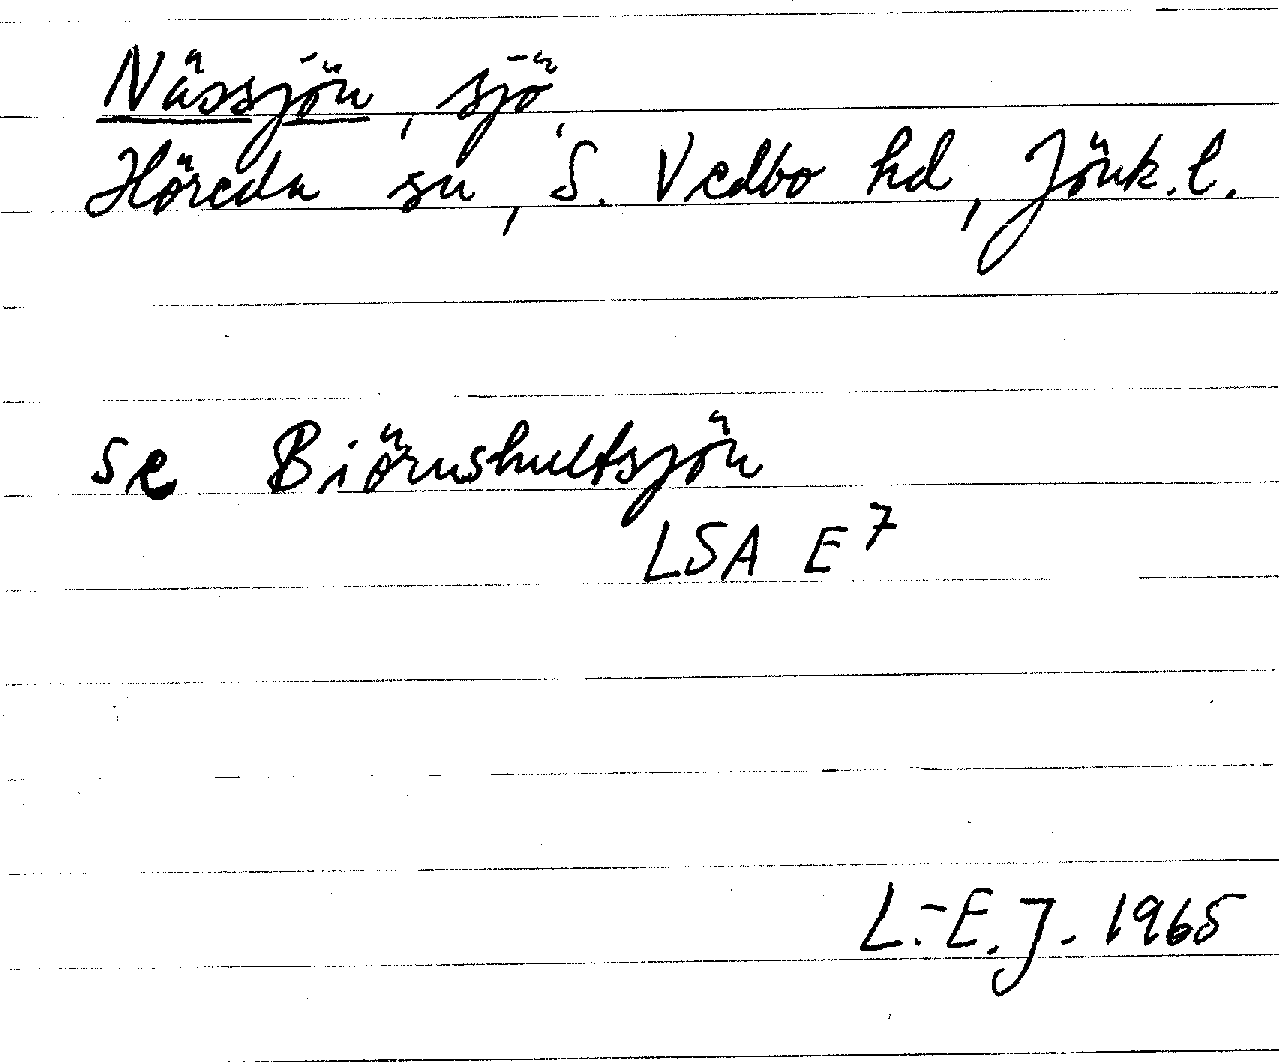 Nässjön, sjö,
Höreda sn, S. Vedbo hd, Jönk.l.
se Biörnshultsjön
LSA E7
L.-E.J. 1965